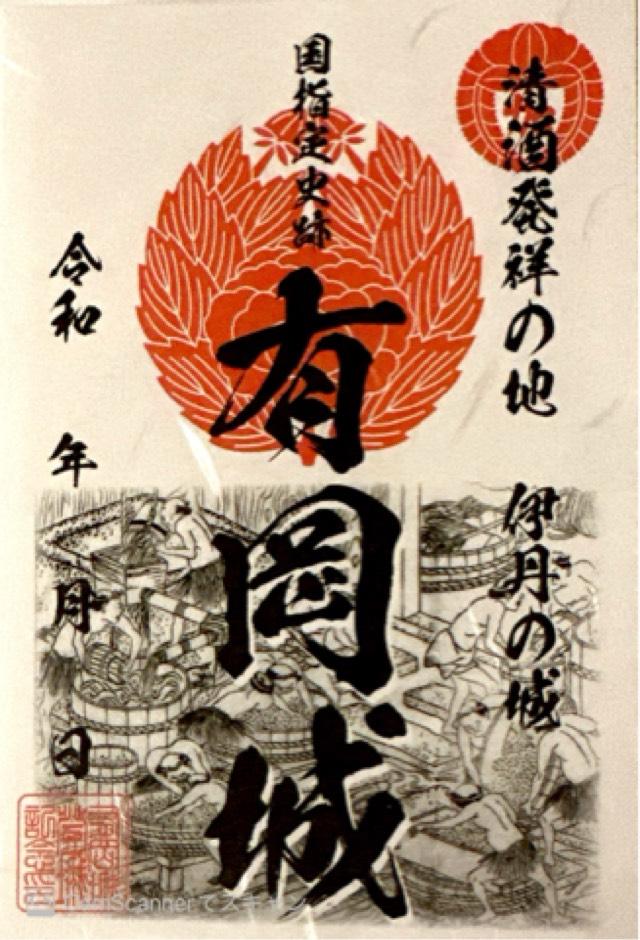 清酒発祥の地 伊丹の城
国指定史跡
有岡城
令和 年 月 日
CamScannerでスキャン